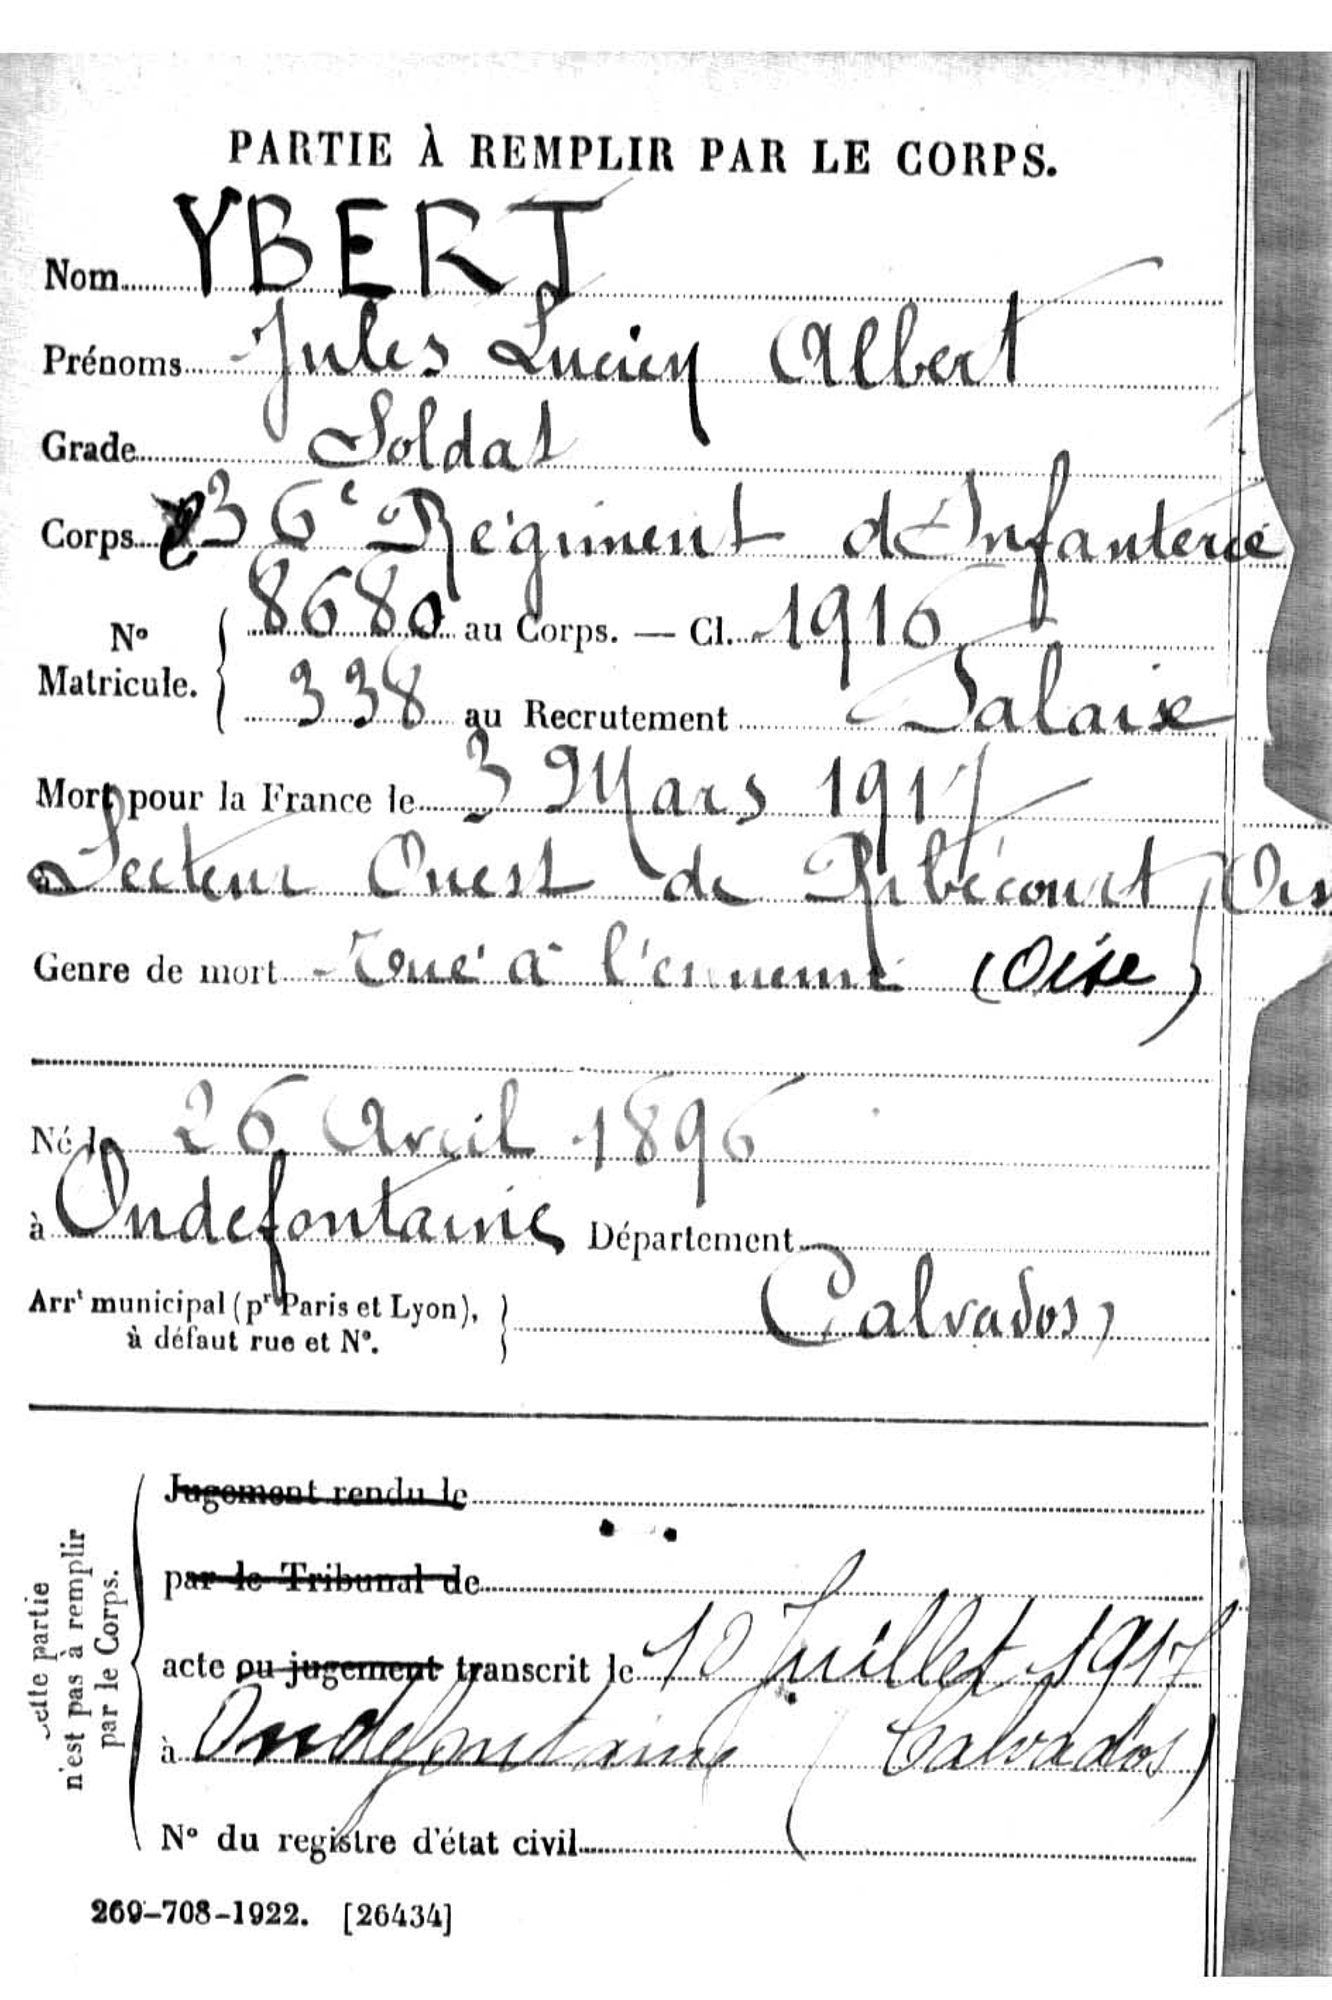 PARTIE À REMPLIR PAR LE CORPS.
Nom YBERT
Prénoms Jules Lucien Albert
Grade Soldat
Corps 36e Régiment d'Infanterie
No Matricule. { 8680 au Corps. — Cl. 1916
338 au Recrutement Falaise
Mort pour la France le 3 Mars 1917
à Secteur Ouest de Ribécourt
Genre de mort Tué à l'ennemi (Oise)
Né le 26 Avril 1896
à Ondefontaine Département
Calvados
Arrt municipal (pr Paris et Lyon), à défaut rue et No.
Jugement rendu le
par le Tribunal de
acte ou jugement transcrit le 10 Juillet 1917
à Ondefontaine (Calvados)
No du registre d'état civil
Cette partie
n'est pas à remplir
par le Corps.
269-708-1922. [26434]